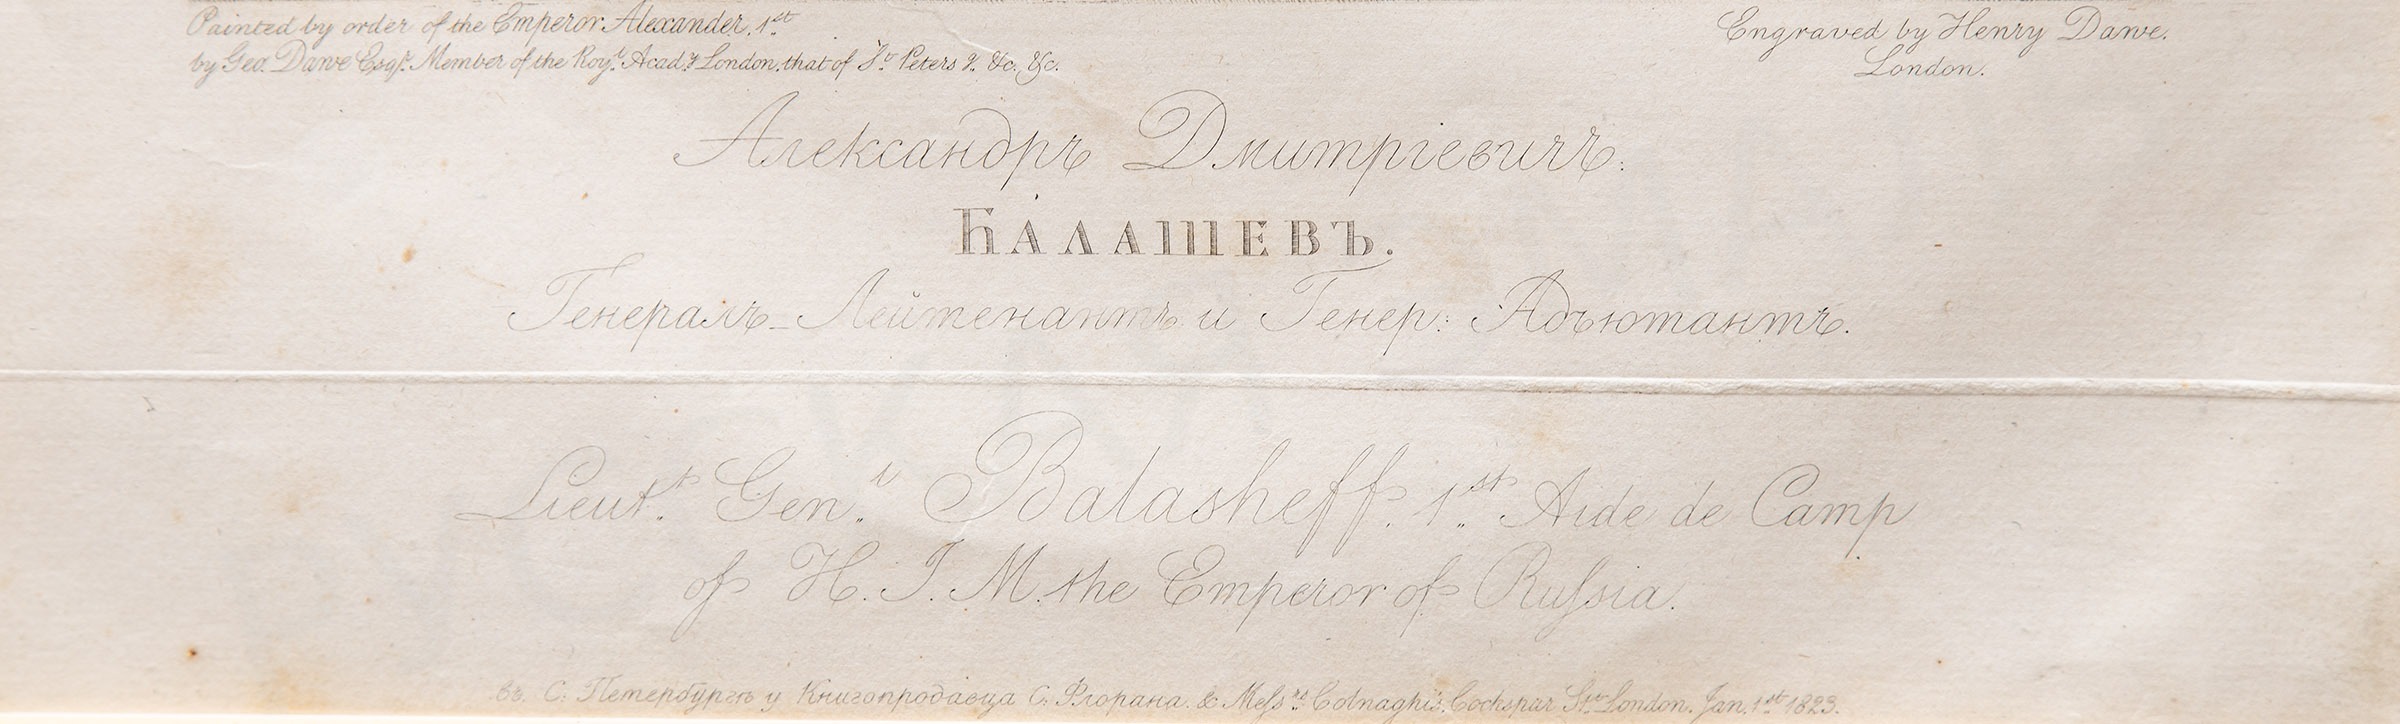 Painted by order of the Emperor Alexander, 1st
by Geo. Dawe Esqr. Member of the Royl. Acady. London, that of St. Peters g. &c. &c.
Engraved by Henry Dawe.
London.
Александръ Дмитріевичъ.
БАЛАШЕВЪ.
Генералъ-Лейтенантъ и Генер: Адъютантъ.
Lieutt. Genl. Balasheff. 1st. Aide de Camp
of H. I. M. the Emperor of Ruſsia.
въ С. Петербургѣ у Книгопродавца С. Флорана. & Meſsrs Colnaghi's, Cockspur St. London. Jan. 1st 1823.